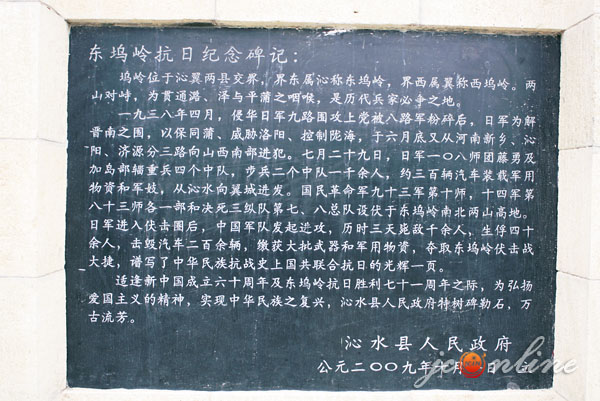 东坞岭抗日纪念碑记：
坞岭位于沁翼两县交界，界东属沁称东坞岭，界西属翼称西坞岭。两
山对峙，为贯通潞、泽与平蒲之咽喉，是历代兵家必争之地。
一九三八年四月，侵华日军九路围攻上党被八路军粉碎后，日军为解
晋南之围，以保同蒲、威胁洛阳、控制陇海，于六月底又从河南新乡、沁
阳、济源分三路向山西南部进犯。七月二十九日，日军一〇八师团藤勇及
加岛部辎重兵四个中队，步兵二个中队一千余人，约三百辆汽车装载军用
物资和军妓，从沁水向翼城进发。国民革命军九十三军第十师，十四军第
八十三师各一部和决死三纵队第七、八总队设伏于东坞岭南北两山高地。
日军进入伏击圈后，中国军队发起进攻，历时三天毙敌千余人，生俘四十
余人，击毁汽车二百余辆，缴获大批武器和军用物资，夺取东坞岭伏击战
大捷，谱写了中华民族抗战史上国共联合抗日的光辉一页。
适逢新中国成立六十周年及东坞岭抗日胜利七十一周年之际，为弘扬
爱国主义的精神，实现中华民族之复兴，沁水县人民政府特树碑勒石，万
古流芳。
沁水县人民政府
公元二〇〇九年 月 日 立
online